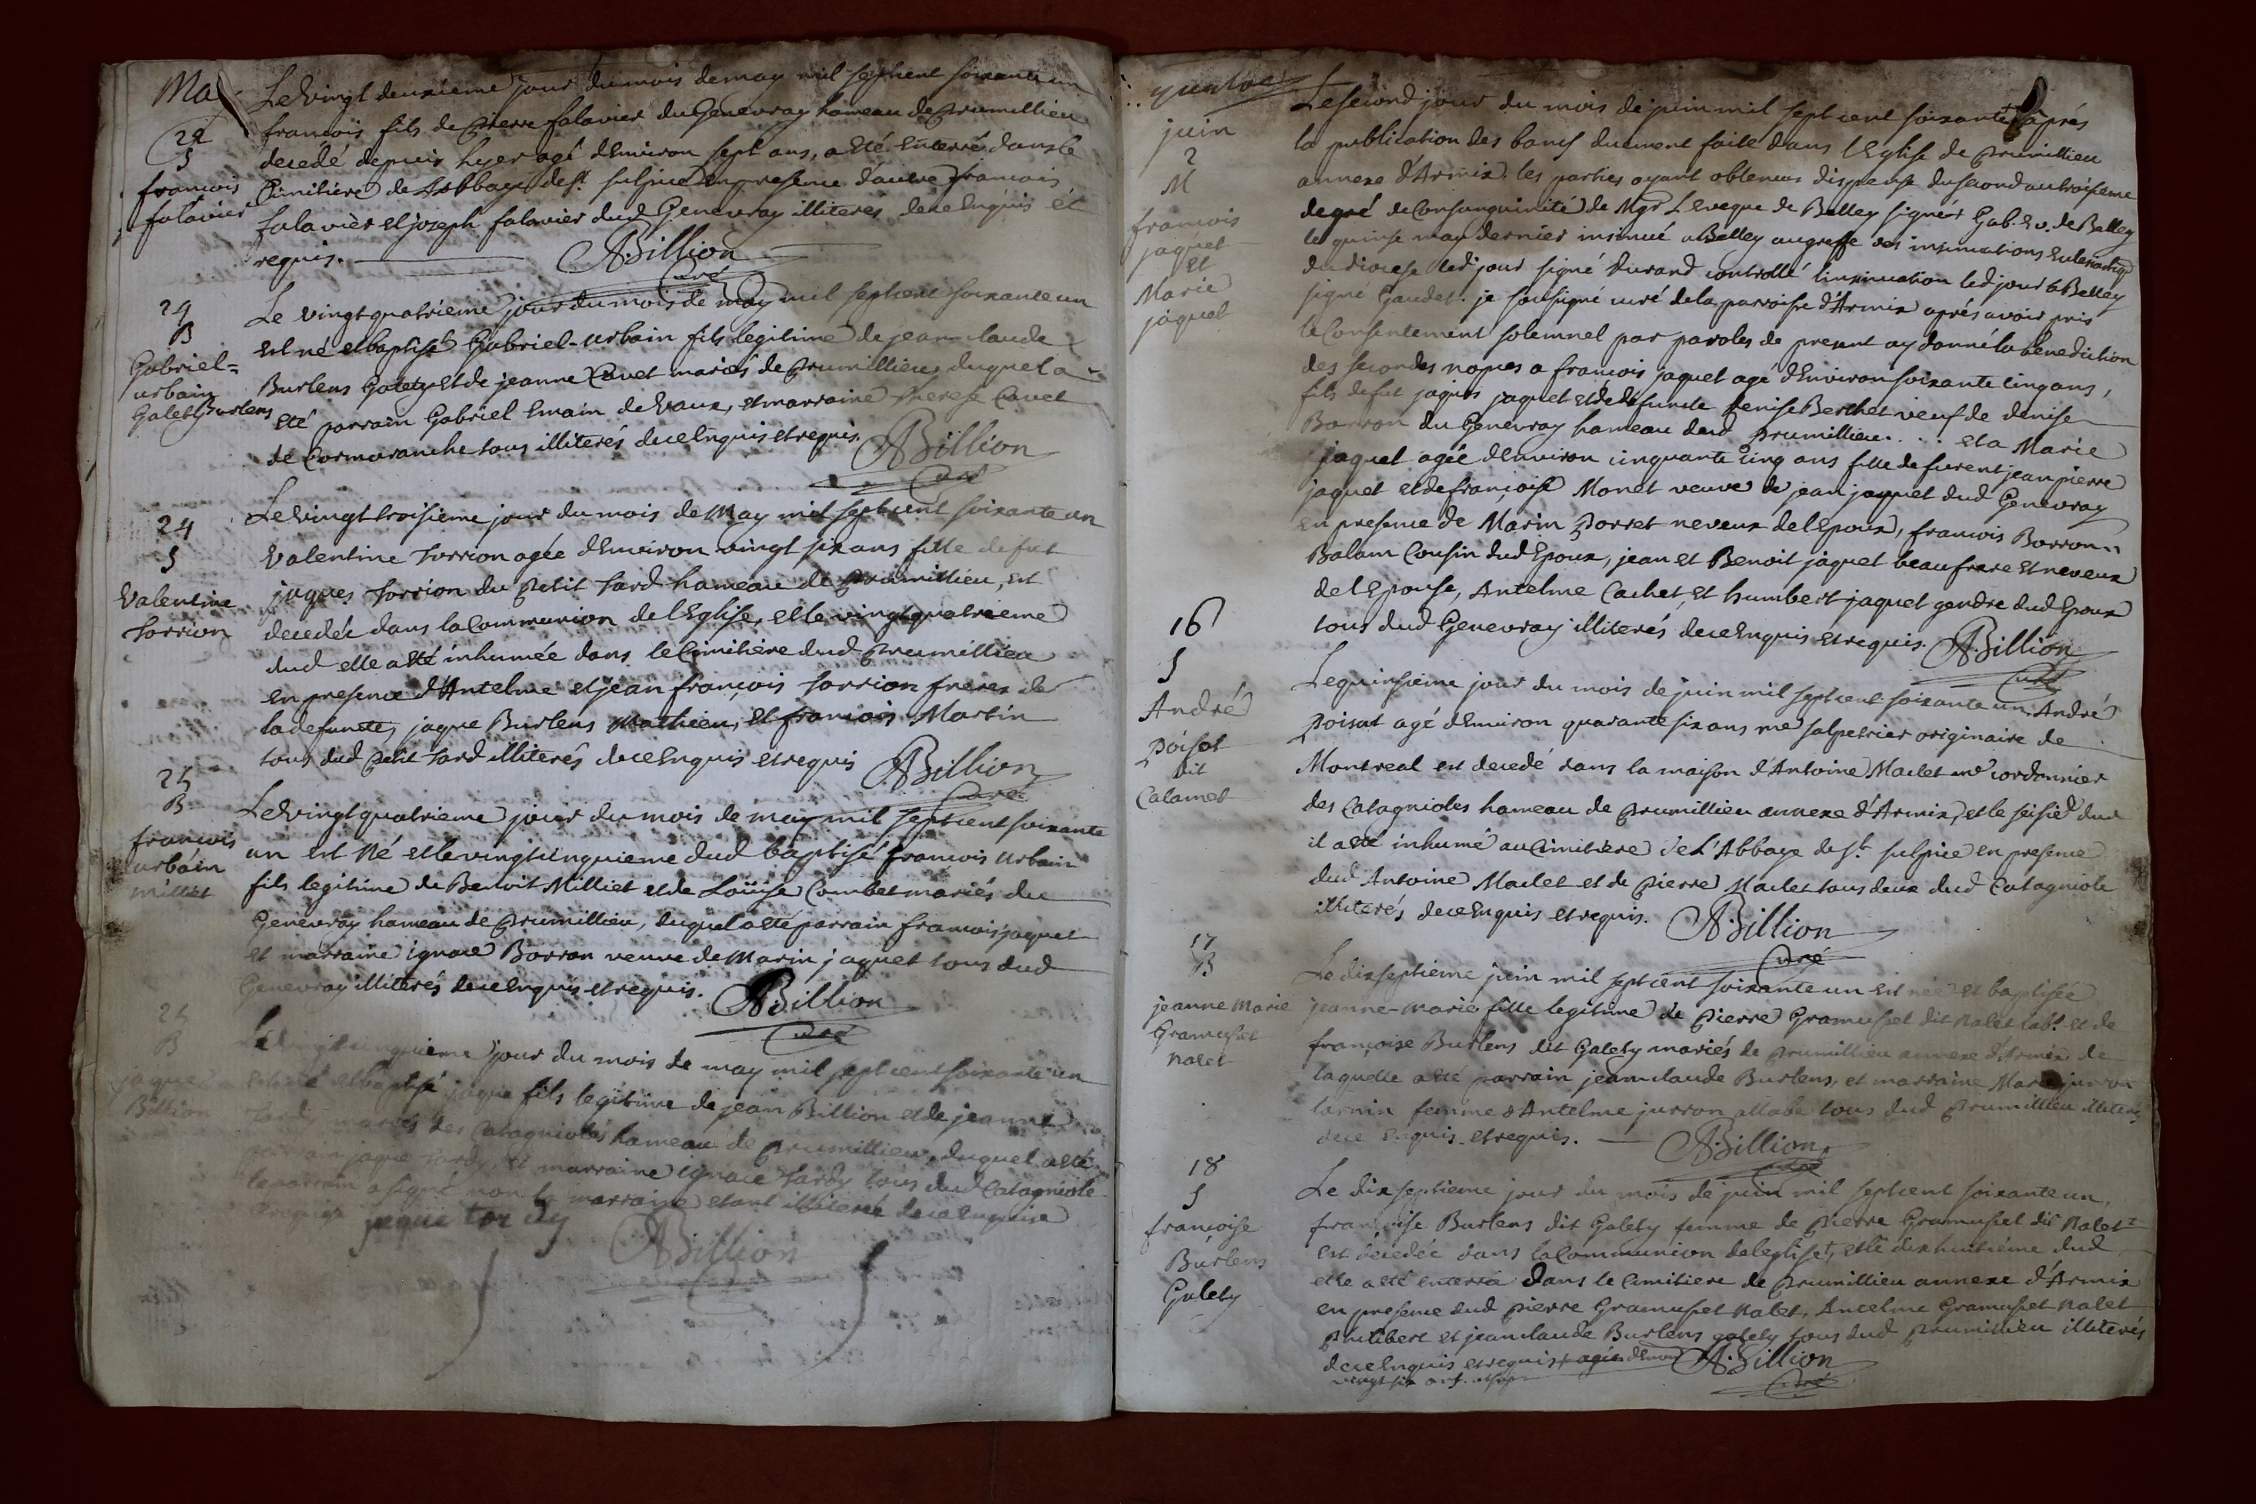 May
22
S
francois
falavier
Le vingt deuxieme jour du mois de may mil septcent soixante un
francois fils de Pierre falavier du Genevray hameau de Prumillieu
decedé depuis hyer agé d'Environ sept ans, a eté enterré dans le
Cimitiere de l'abbaye de st. sulpice en presence d'autre francois
falavier et joseph falavier dud Genevray illiterés de ce enquis et
requis. ABillion
curé
24
B
Gabriel=
urbain
Galety Burlens
Le vingt quatrième jour du mois de may mil septcent soixante un
est né et baptisé Gabriel-urbain fils legitime de jean claude
Burlens Galety et de jeanne Cavet mariés de Prumillieu duquel a
eté parrain Gabriel Emain de Vaux, et marraine therese Cavet
de Cormaranche tous illiterés de ce Enquis et requis. ABillion
curé
24
S
Valentine
Torrion
Le vingt troisième jour du mois de May mil septcent soixante un
Valentine Torrion agée d'Environ vingt six ans fille de fut
jaques Torrion du Petit Tard hameau de Prumillieu, est
decedée dans la Communion de l'Eglise, et le vingt quatrieme
dud elle a eté inhumée dans le Cimitière dud Prumillieu
en presence d'Antelme et jean françois Torrion freres de
la defuncte, jaque Burlens Mathieu, et francois Martin
tous dud Petit Tard illiterés de ce Enquis et requis ABillion
curé
25
B
francois
urbain
milliet
Le Vingt quatrieme jour du mois de may mil septcent soixante
un est Né et le vingt cinquieme dud baptisé francois Urbain
fils legitime de Benoit Milliet et de Loüise Combet mariés du
Genevray hameau de Prumillieu, duquel a eté parrain francois jaquet
et marraine ignace Borron veuve de Marin jaquet tous dud
Genevray illiterés de ce Enquis et requis. ABillion
curé
25
B
jaque
Billion
Le vingt cinquieme jour du mois de may mil septcent soixante un
est né et baptisé jaque fils legitime de jean Billion et de jeanne
Tardy mariés des Catagnioles hameau de Prumillieu, duquel a eté
parrain jaque Tardy, et marraine ignace Tardy tous dud Catagniole
le parrain a signé non la marraine etant illiterée de ce Enquise
et requise jaque tar dy
ABillion
quatre
juin
2
M
francois
jaquet
et
Marie
jaquet
Le second jour du mois de juin mil sept cent soixante un après
la publication des bancs duement faite dans l'Eglise de Prumillieu
annexe d'Armix. les parties ayant obtenues dispense du second au troisieme
degré de Consanguinité de Mgr L'eveque de Belley signée Gab. Ev. de Belley
le quinse may dernier insinué a Belley au greffe des insinuations Eclesiastiq
du diocese led jour signé Durand controllé l'insinuation led jour a Belley
signé Gaudet. je soussigné curé de la parroisse d'Armix après avoir pris
le Consentement solemnel par paroles de present ay donné la benediction
des secondes nopces a francois jaquet agé d'Environ soixante cinq ans,
fils de fut jaques jaquet et de defuncte Denise Berthet veuf de denise
Borron du Genevray hameau dud Prumillieu. . . . et a Marie
jaquet agée d'Environ cinquante cinq ans fille de furent jean pierre
jaquet et de françoise Monet veuve de jean jaquet dud Genevray
en presence de Marin Porret neveux de l'Epoux, francois Borron
Balam Cousin dud Epoux, jean et Benoit jaquet beaufrere et neveux
de l'Epouse, Antelme Cachet, et humbert jaquet gendre dud Epoux
tous dud Genevray illiterés de ce Enquis et requis. ABillion
curé
16
S
André
Poisat
dit
Calamet
Le quinsieme jour du mois de juin mil septcent soixante un André
Poisat agé d'Environ quarante six ans me salpetrier originaire de
Montreal est decedé dans la maison d'Antoine Maclet me cordonnier
des Catagnioles hameau de Prumillieu annexe d'Armix, et le seisie dud
il a eté inhumé au Cimitiere de L'Abbaye de st. sulpice en presence
dud Antoine Maclet et de Pierre Maclet tous deux dud Catagniole
illiterés de ce Enquis et requis. ABillion
curé
17
B
jeanne Marie
Gramuset
nalet
Le dixseptieme juin mil septcent soixante un est née et baptisée
jeanne-marie fille legitime de Pierre Gramuset dit nalet labr. et de
françoise Burlens dit Galety mariés de Prumillieu annexe d'Armix de
laquelle a eté parrain jeanclaude Burlens, et marraine Marie jurron
femme d'Antelme jurron allabe tous dud Prumillieu illiterés
de ce enquis et requis. ABillion
curé
18
S
françoise
Burlens
Galety
Le dixseptieme jour du mois de juin mil septcent soixante un,
françoise Burlens dit Galety femme de Pierre Gramuset dit Nalet
est decedée dans la Communion de leglise, et le dixhuitième dud
elle a eté enterrée dans le Cimitiere de Prumillieu annexe d'Armix
en presence dud Pierre Gramuset Nalet, Ancelme Gramuset nalet
Philibert et jeanclaude Burlens galety tous dud Prumillieu illiterés
de ce Enquis et requis + agée d'Environ ABillion
vingt six ans. curé